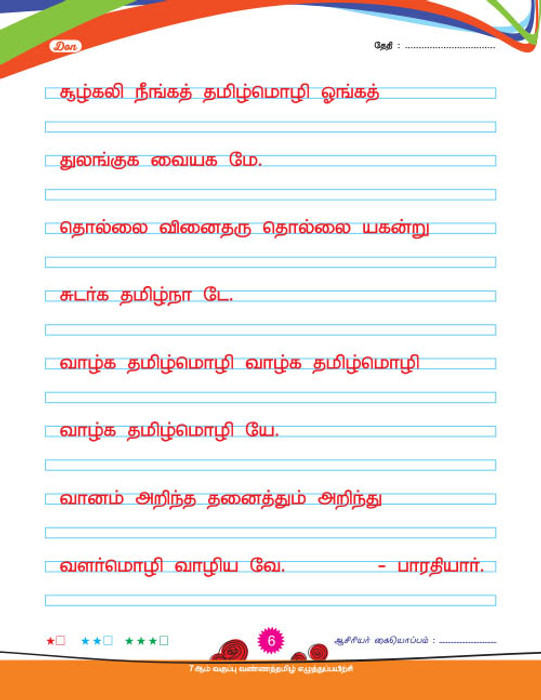 Don
தேதி : ..................................
சூழ்கலி நீங்கத் தமிழ்மொழி ஓங்கத்
துலங்குக வையக மே.
தொல்லை வினைதரு தொல்லை யகன்று
சுடர்க தமிழ்நா டே.
வாழ்க தமிழ்மொழி வாழ்க தமிழ்மொழி
வாழ்க தமிழ்மொழி யே.
வானம் அறிந்த தனைத்தும் அறிந்து
வளர்மொழி வாழிய வே. - பாரதியார்.
6 ஆசிரியர் கையொப்பம் : ........................
7ஆம் வகுப்பு வண்ணத்தமிழ் எழுத்துப்பயிற்சி